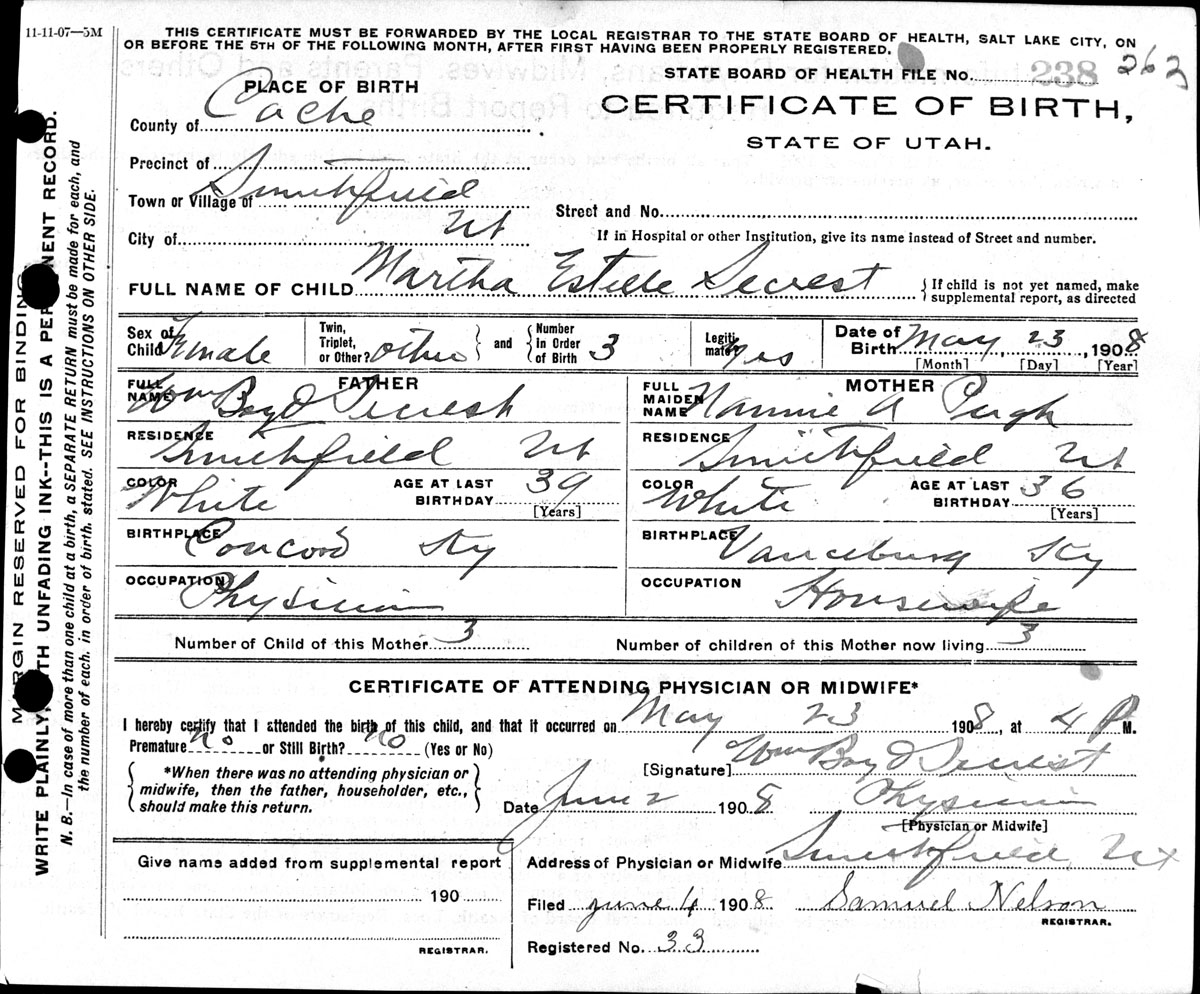 11-11-07—5M
THIS CERTIFICATE MUST BE FORWARDED BY THE LOCAL REGISTRAR TO THE STATE BOARD OF HEALTH, SALT LAKE CITY, ON
OR BEFORE THE 5TH OF THE FOLLOWING MONTH, AFTER FIRST HAVING BEEN PROPERLY REGISTERED.
STATE BOARD OF HEALTH FILE No. 238 263
PLACE OF BIRTH
CERTIFICATE OF BIRTH,
STATE OF UTAH.
County of Cache
Precinct of
Town or Village of Smithfield
Street and No.
City of Ut
If in Hospital or other Institution, give its name instead of Street and number.
FULL NAME OF CHILD Martha Estelle Secrest { If child is not yet named, make
supplemental report, as directed
Sex of Child Female
Twin, Triplet, or Other? other } and { Number In Order of Birth 3
Legitimate? yes
Date of Birth May 23, 1908
[Month] [Day] [Year]
FATHER
FULL NAME Wm Boyd Secrest
MOTHER
FULL MAIDEN NAME Nannie A Pugh
RESIDENCE Smithfield Ut
RESIDENCE Smithfield Ut
COLOR White AGE AT LAST BIRTHDAY 39 [Years]
COLOR White AGE AT LAST BIRTHDAY 36 [Years]
BIRTHPLACE Concord Ky
BIRTHPLACE Vanceburg Ky
OCCUPATION Physician
OCCUPATION Housewife
Number of Child of this Mother 3
Number of children of this Mother now living 3
CERTIFICATE OF ATTENDING PHYSICIAN OR MIDWIFE*
I hereby certify that I attended the birth of this child, and that it occurred on May 23 1908, at 4 P M.
Premature no or Still Birth? no (Yes or No)
{ *When there was no attending physician or
midwife, then the father, householder, etc.,
should make this return. }
[Signature] Wm Boyd Secrest
Date June 2 1908 Physician
[Physician or Midwife]
Give name added from supplemental report
190
REGISTRAR.
Address of Physician or Midwife Smithfield Ut
Filed June 4 1908 Samuel Nelson
REGISTRAR.
Registered No. 33
MARGIN RESERVED FOR BINDING
WRITE PLAINLY, WITH UNFADING INK--THIS IS A PERMANENT RECORD.
N. B.—In case of more than one child at a birth, a SEPARATE RETURN must be made for each, and
the number of each, in order of birth, stated. SEE INSTRUCTIONS ON OTHER SIDE.